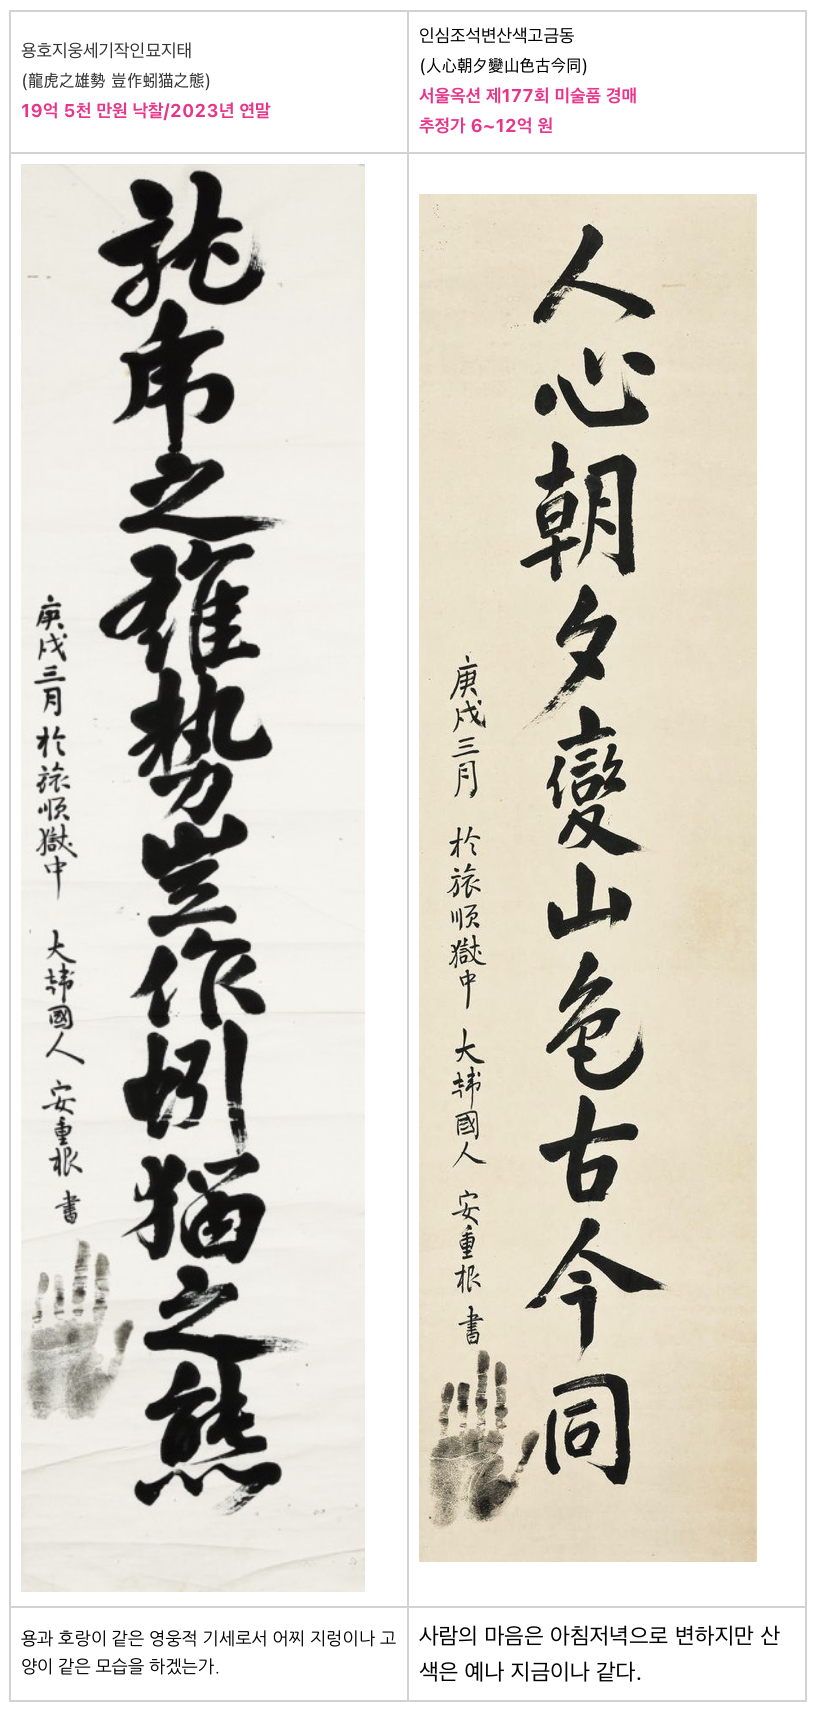 용호지웅세기작인묘지태
(龍虎之雄勢 豈作蚓猫之態)
19억 5천 만원 낙찰/2023년 연말
인심조석변산색고금동
(人心朝夕變山色古今同)
서울옥션 제177회 미술품 경매
추정가 6~12억 원
龍虎之雄勢豈作蚓猫之態
庚戌三月 於旅順獄中 大韓國人 安重根 書
人心朝夕變山色古今同
庚戌三月 於旅順獄中 大韓國人 安重根 書
용과 호랑이 같은 영웅적 기세로서 어찌 지렁이나 고
양이 같은 모습을 하겠는가.
사람의 마음은 아침저녁으로 변하지만 산
색은 예나 지금이나 같다.